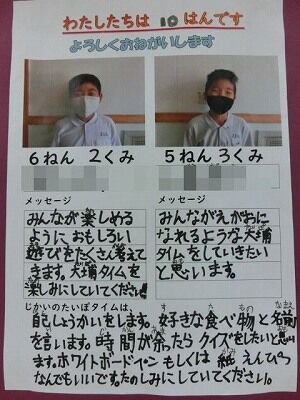 わたしたちは 10 はんです
よろしくおねがいします
6ねん 2くみ
5ねん 3くみ
メッセージ
みんなが楽しめる
ようにおもしろい
遊びをたくさん考えて
きます。犬埔タイムを
楽しみにしていてください!
メッセージ
みんながえがおに
なれるような犬埔
タイムをしていきたい
と思います。
じかいのたいぽタイムは、
自己しょうかいをします。好きな食べ物と名前
を言います。時間が余ったらクイズをしたいと思い
ます。ホワイトボードペンもしくは紙えんぴつ
なんでもいいです。たのしみにしていてください。